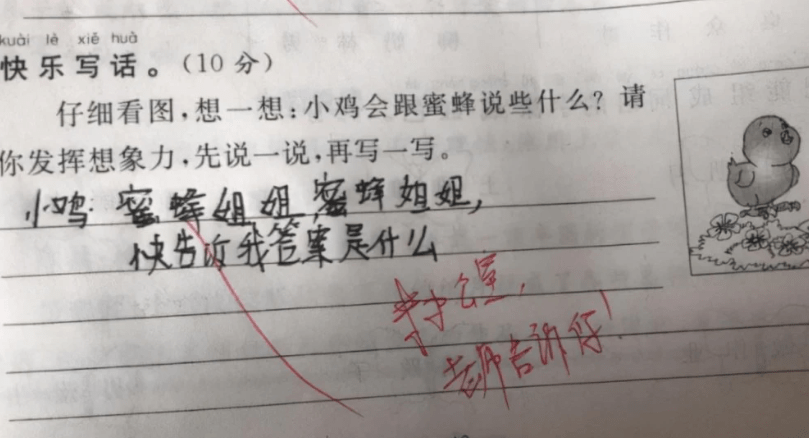 kuài lè xiě huà
快乐写话。(10分)
仔细看图,想一想:小鸡会跟蜜蜂说些什么?请
你发挥想象力,先说一说,再写一写。
小鸡 蜜蜂姐姐,蜜蜂姐姐,
快告诉我答案是什么
老师告诉你!